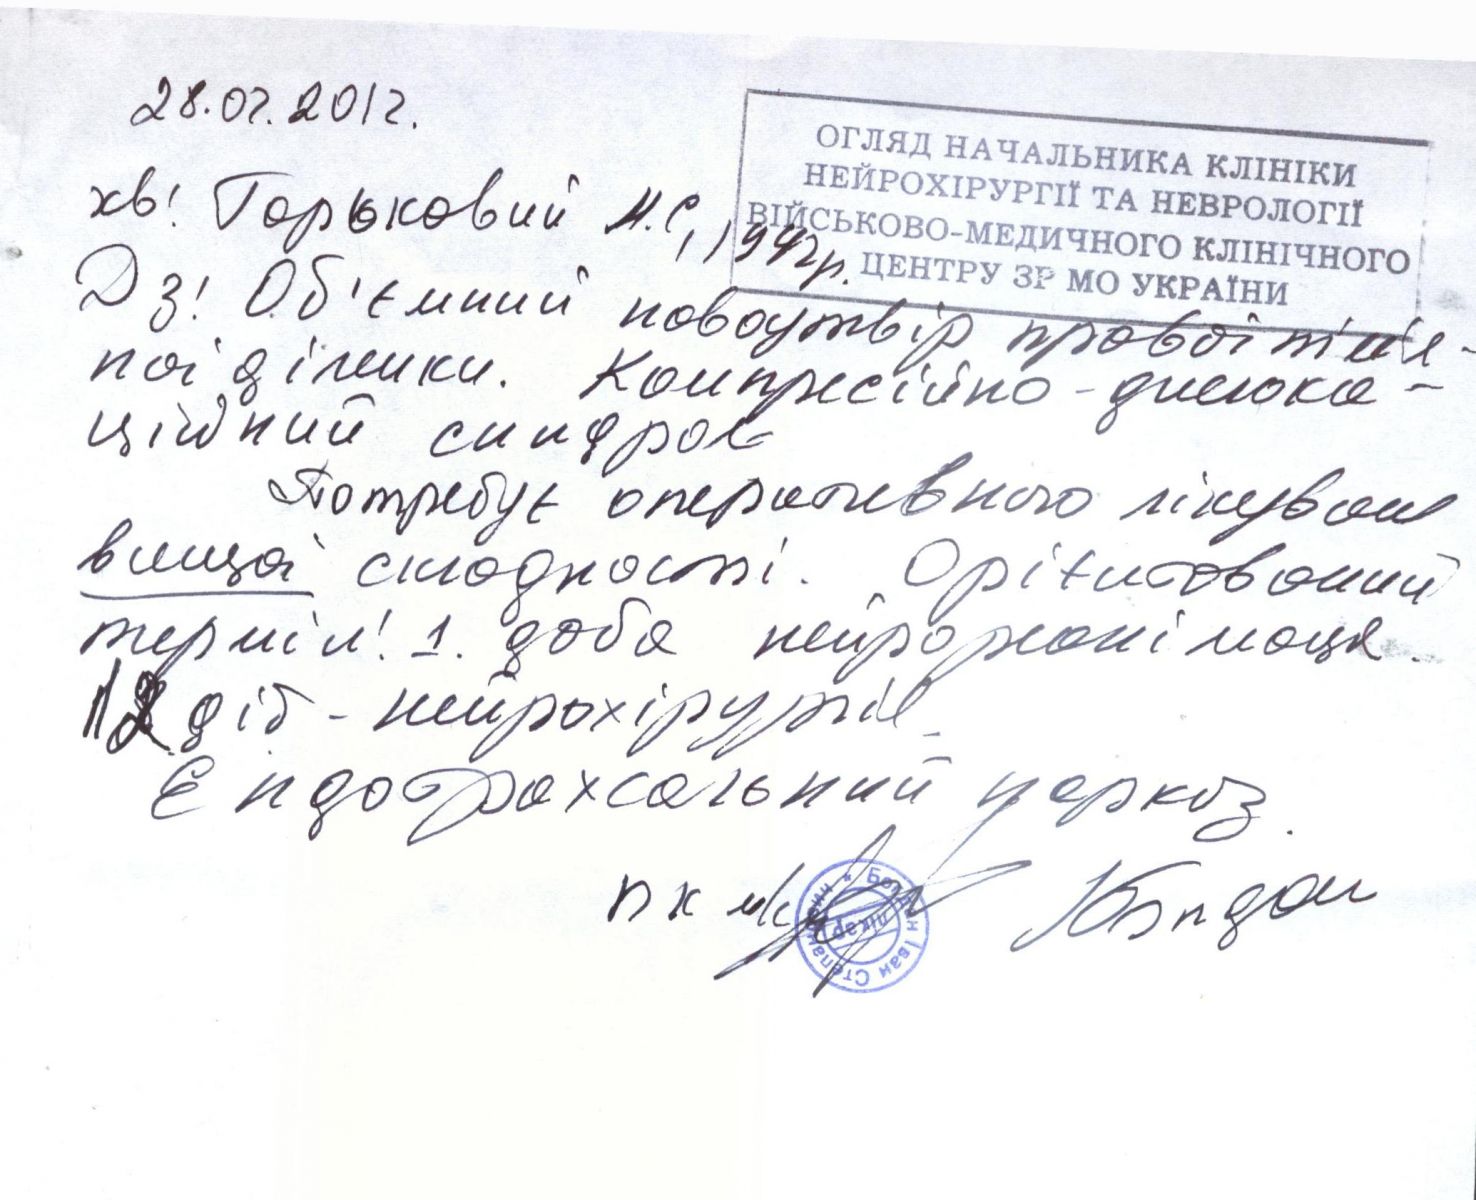 28.02.2012.
ОГЛЯД НАЧАЛЬНИКА КЛІНІКИ
НЕЙРОХІРУРГІЇ ТА НЕВРОЛОГІЇ
ВІЙСЬКОВО-МЕДИЧНОГО КЛІНІЧНОГО
ЦЕНТРУ ЗР МО УКРАЇНИ
хв! Горьковий М.С,
Дз! Об'ємний новоутвір правої тім'я-
ної ділянки. Компресійно-дислока-
ційний синдром
Потребує оперативного лікуван
вищої складності. Орієнтований
термін! 1. доба нейрореанімація.
12 діб - нейрохірургія
Ендотрахеальний наркоз.
ПК м/с Бондан
Бондан Іван Степанович
лікар